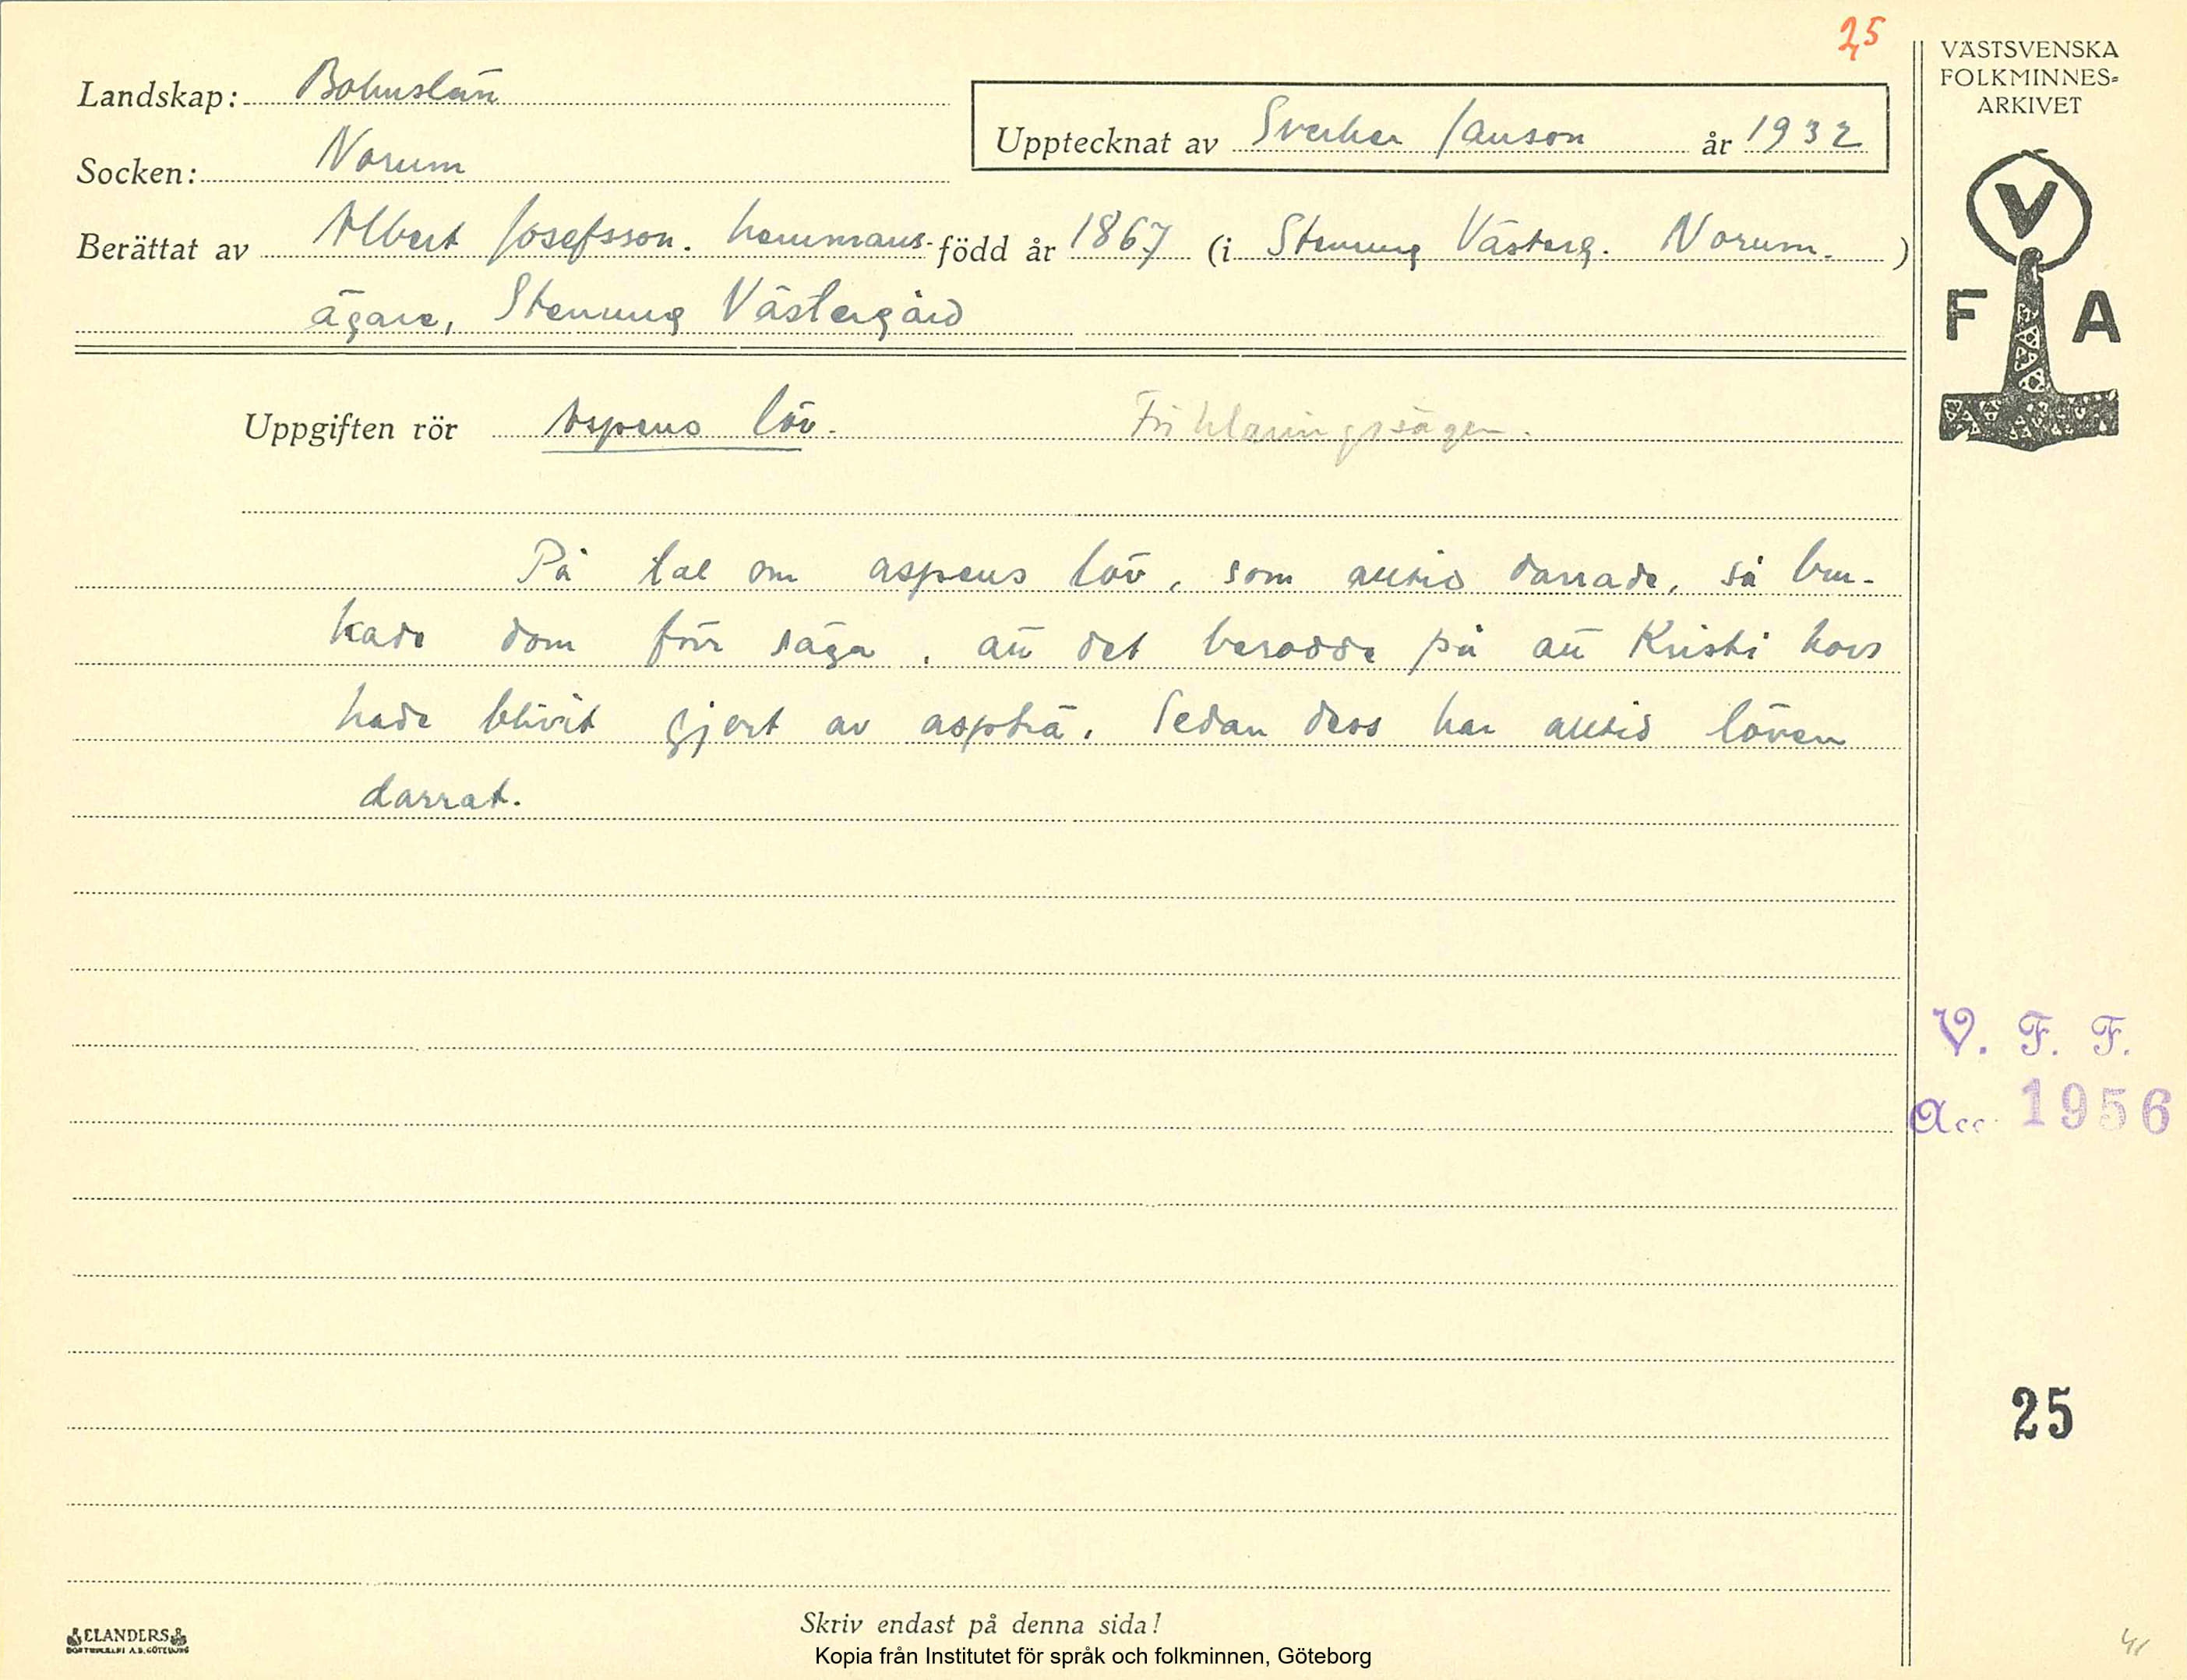 25
VÄSTSVENSKA
FOLKMINNES=
ARKIVET
Landskap: Bohuslän
Upptecknat av Sverker Janson år 1932
Socken: Norum
Berättat av Albert Josefsson. hemmans- född år 1867 (i Stenung Västerg. Norum. )
ägare, Stenung Västergård
V
F A
Uppgiften rör Aspens löv. Förklaringssägen.
På tal om aspens löv, som alltid darrade, så bru-
kade dom förr säga, att det berodde på att Kristi kors
hade blivit gjort av aspträ. Sedan dess har alltid löven
darrat.
V. F. F.
Acc. 1956
25
ELANDERS
BOKTRYCKERI A.B. GÖTEBORG
Skriv endast på denna sida!
Kopia från Institutet för språk och folkminnen, Göteborg